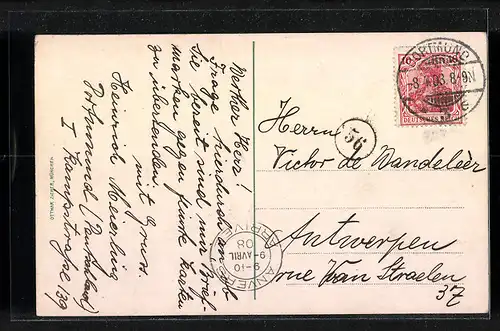 Werther Herr!
Frage hierdurch an, ob
Sie bereit sind mir Brief-
marken gegen feinste Karten
zu übersenden.
mit Gruss
Heinrich Meierling
Dortmund (Deutschland)
I Kampstraße 139
OTTMAR ZIEHER, MÜNCHEN
DORTMUND
8-9N
DEUTSCHES REICH
56
Herrn
Victor de Wandeleèr
Antwerpen
rue Van Straelen
37
ANVERS
9-10
9-AVRIL
08
ARRIVÉE